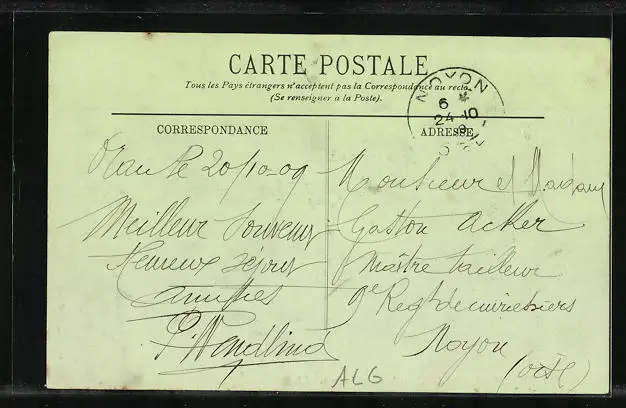 CARTE POSTALE
Tous les Pays étrangers n'acceptent pas la Correspondance au recto.
(Se renseigner a la Poste).
NOYON
6 *
24-10
09
CORRESPONDANCE
ADRESSE
Oran le 20/10-09
Meilleur Souvenir
Heureux séjour
amitiés
P. Wendling
Monsieur et Madame
Gaston Acker
Maître tailleur
9e Regt de cuirassiers
Noyon
(Oise)
ALG